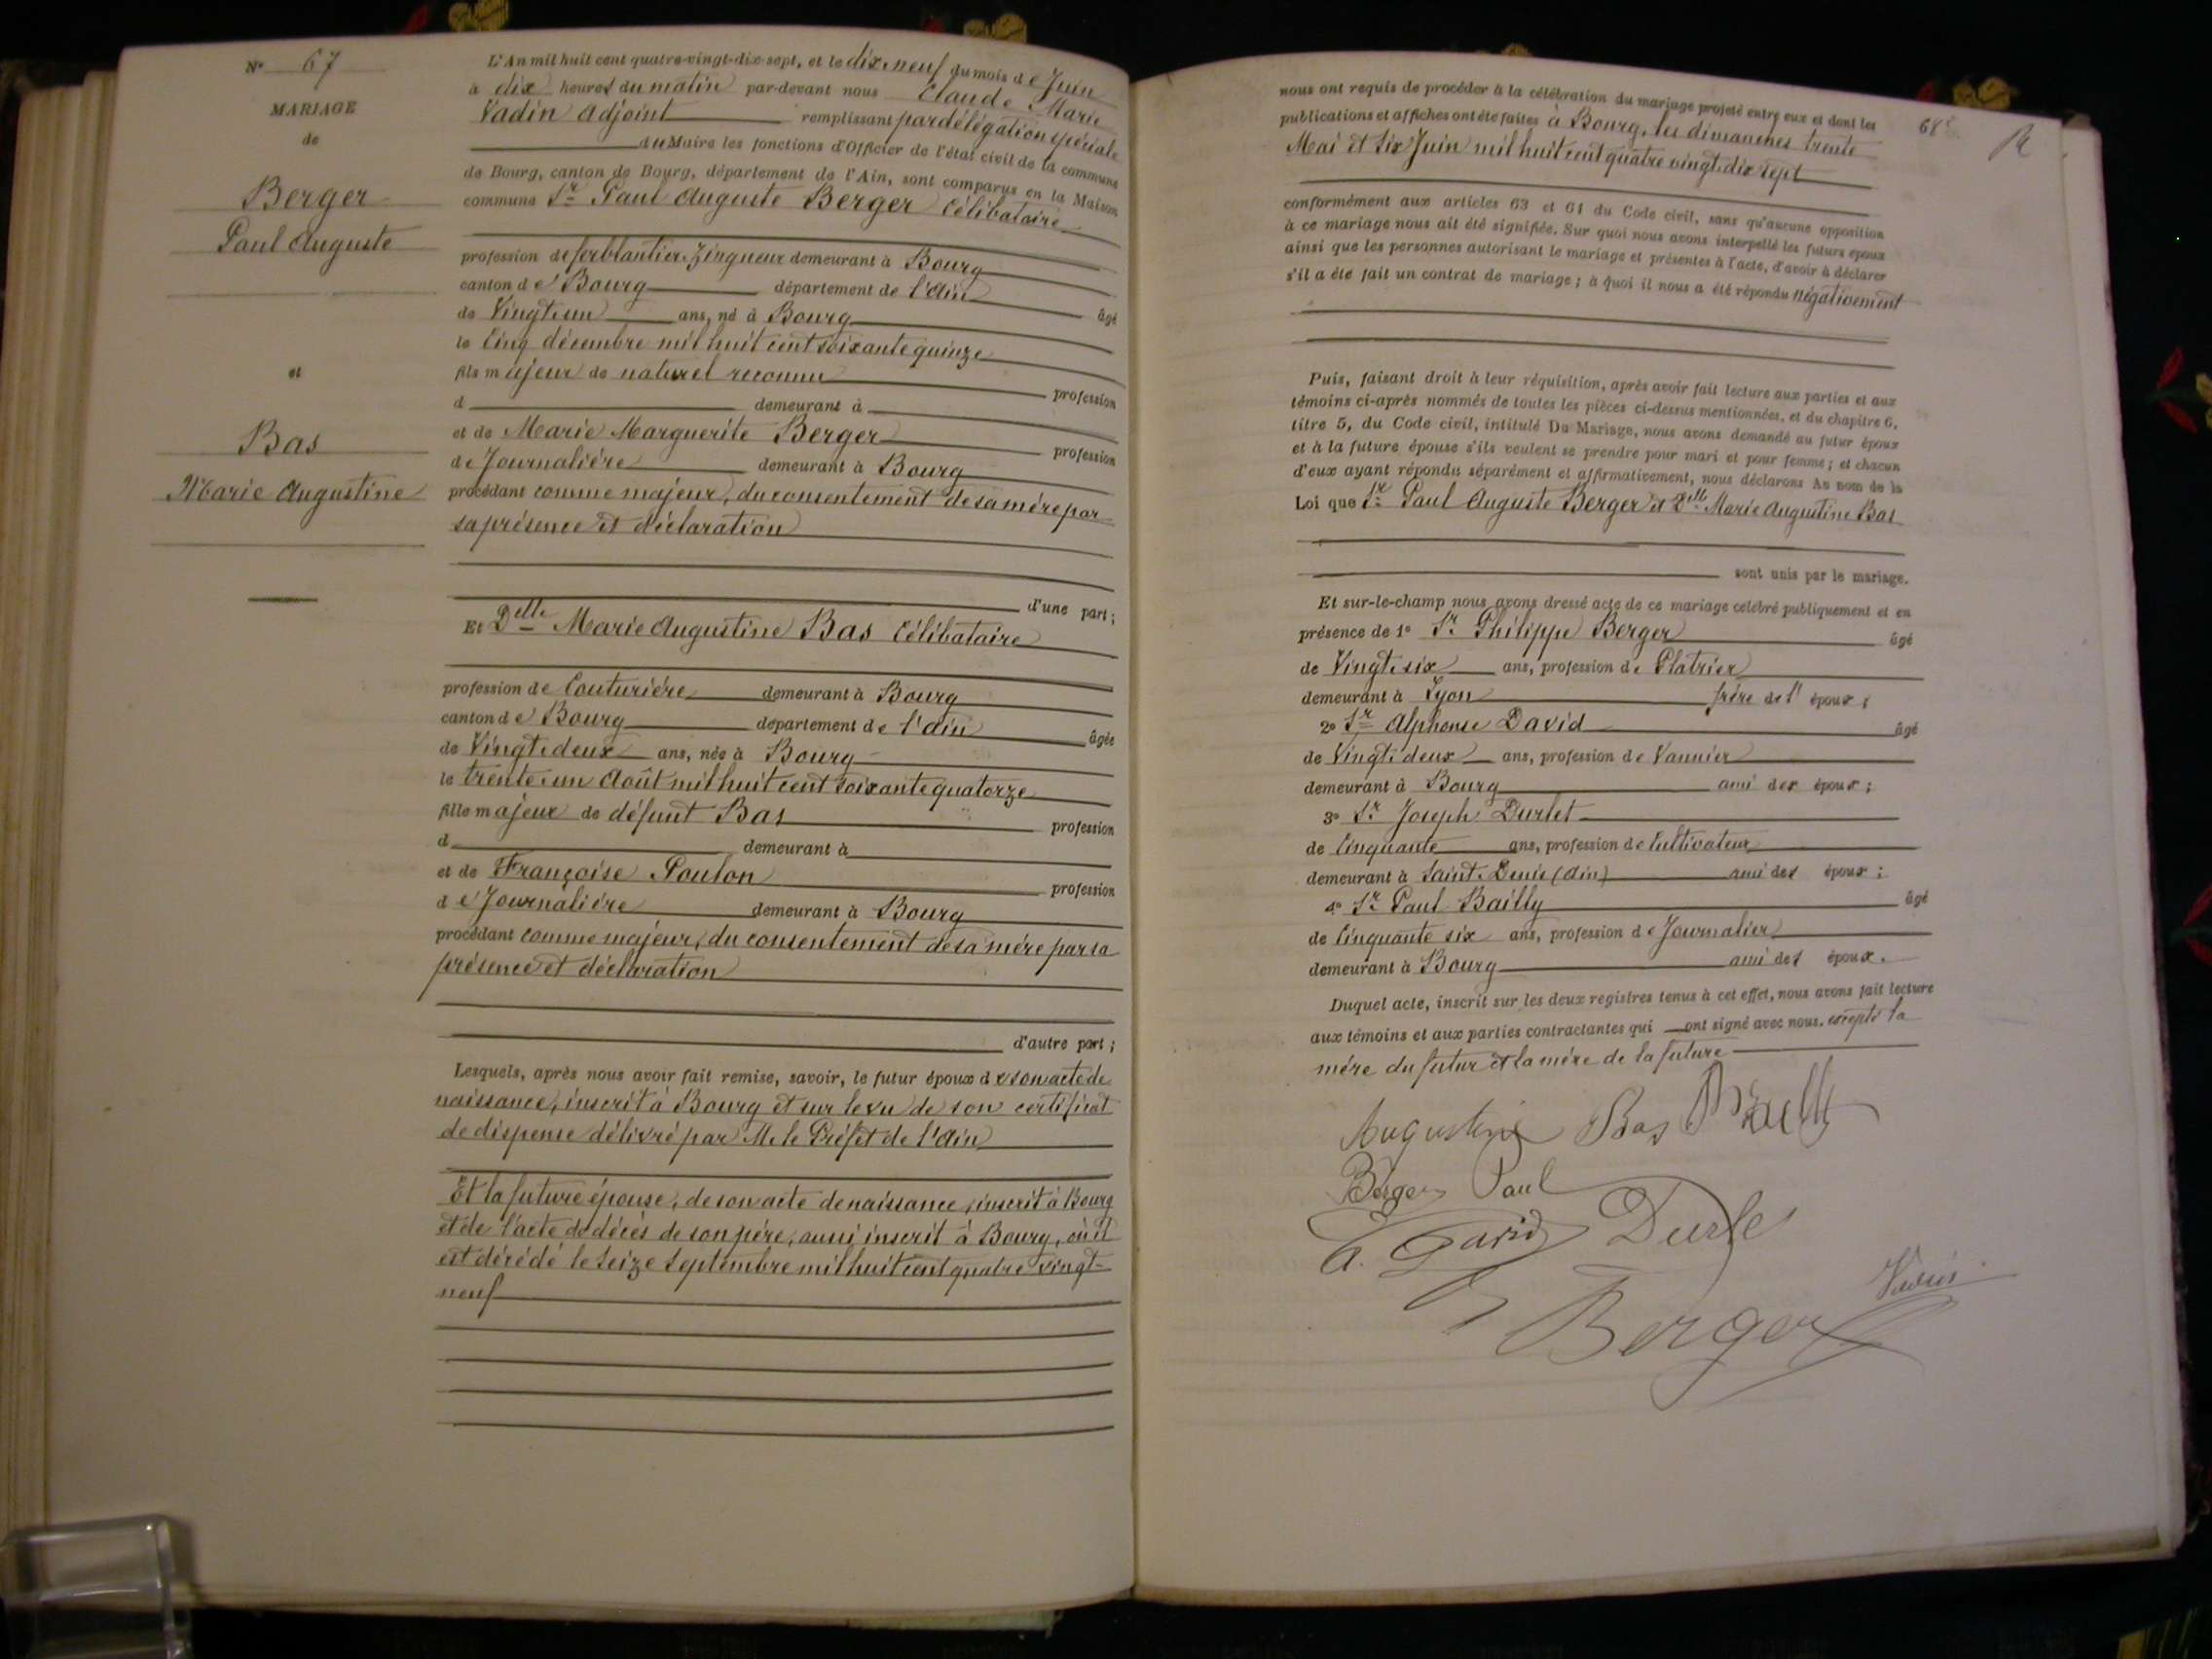 N° 67
MARIAGE
de
Berger
Paul Auguste
et
Bas
Marie Augustine
L'An mil huit cent quatre-vingt-dix-sept, et le dix neuf du mois de Juin
à dix heures du matin par-devant nous Claude Marie
Vadin Adjoint remplissant par délégation spéciale
du Maire les fonctions d'Officier de l'état civil de la commune
de Bourg, canton de Bourg, département de l'Ain, sont comparus en la Maison
commune Sr Paul Auguste Berger Célibataire
profession de ferblantier Zingueur demeurant à Bourg
canton de Bourg département de l'Ain âgé
de Vingt un ans, né à Bourg
le Cinq décembre mil huit cent soixante quinze
fils majeur de naturel reconnu profession
d demeurant à
et de Marie Marguerite Berger profession
de Journalière demeurant à Bourg
procédant comme majeur, du consentement de sa mère par
sa présence et déclaration
d'une part;
Et Delle Marie Augustine Bas Célibataire
profession de Couturière demeurant à Bourg
canton de Bourg département de l'Ain âgée
de Vingt deux ans, née à Bourg
le trente un Août mil huit cent soixante quatorze
fille majeur de défunt Bas profession
d demeurant à
et de Françoise Poulon profession
de Journalière demeurant à Bourg
procédant comme majeur, du consentement de sa mère par sa
présence et déclaration
d'autre part;
Lesquels, après nous avoir fait remise, savoir, le futur époux de son acte de
naissance, inscrit à Bourg et sur le vu de son certificat
de dispense délivré par M. le Préfet de l'Ain
Et la future épouse, de son acte de naissance, inscrit à Bourg
et de l'acte de décès de son père, aussi inscrit à Bourg, où il
est décédé le Seize Septembre mil huit cent quatre vingt-
neuf
68e
nous ont requis de procéder à la célébration du mariage projeté entre eux et dont les
publications et affiches ont été faites à Bourg, les dimanches trente
Mai et Six Juin mil huit cent quatre vingt dix sept
conformément aux articles 63 et 64 du Code civil, sans qu'aucune opposition
à ce mariage nous ait été signifiée. Sur quoi nous avons interpellé les futurs époux
ainsi que les personnes autorisant le mariage et présentes à l'acte, d'avoir à déclarer
s'il a été fait un contrat de mariage; à quoi il nous a été répondu négativement
Puis, faisant droit à leur réquisition, après avoir fait lecture aux parties et aux
témoins ci-après nommés de toutes les pièces ci-dessus mentionnées, et du chapitre 6,
titre 5, du Code civil, intitulé Du Mariage, nous avons demandé au futur époux
et à la future épouse s'ils veulent se prendre pour mari et pour femme; et chacun
d'eux ayant répondu séparément et affirmativement, nous déclarons Au nom de la
Loi que Sr Paul Auguste Berger et Delle Marie Augustine Bas
sont unis par le mariage.
Et sur-le-champ nous avons dressé acte de ce mariage célébré publiquement et en
présence de 1° Sr Philippe Berger âgé
de Vingt six ans, profession de Platrier
demeurant à Lyon frère de l' époux;
2° Sr Alphonse David âgé
de Vingt deux ans, profession de Vannier
demeurant à Bourg ami des époux;
3° Sr Joseph Durlet
de Cinquante ans, profession de Cultivateur
demeurant à Saint Denis (Ain) ami des époux;
4° Sr Paul Bailly âgé
de Cinquante six ans, profession de Journalier
demeurant à Bourg ami des époux.
Duquel acte, inscrit sur les deux registres tenus à cet effet, nous avons fait lecture
aux témoins et aux parties contractantes qui ont signé avec nous. excepté la
mère du futur et la mère de la future
Augustine Bas Bailly
Berger Paul
A. David Durle
Vadin
Berger